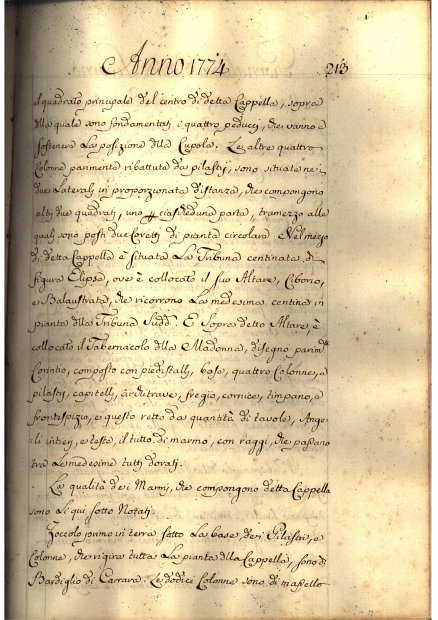 Anno 1774. 213
il quadrato principale del centro di detta Cappella, sopra
dlla quale sono fondamentati i quattro peducci, che vanno a
sostenere La posizione dlla Cupola. Le altre quattro
Colonne parimente ribattute da pilastri, sono situate ne
due Laterali in proporzionata distanza, che compongono
altri due quadrati, uno p ciascheduna parte, tramezzo alle
quali sono posti due Coretti di pianta circolare. Nel mezzo
di detta Cappella è situata La Tribuna centinata, di
figura Elipsa, ove è collocato il suo Altare, Ciborio,
e Balaustrata, che ricorrono La medesima centina in
pianta dlla Tribuna Sudd.ª E Sopra detto Altare, è
collocato il Tabernacolo dlla Madonna, disegno parim.te
Corintio, composto con piedistalli, base, quattro Colonne, e
pilastri, capitelli, architrave, fregio, cornice, timpano, e
frontespizio, e questo retto da quantità di tavole, Ange-
li intieri, e teste, il tutto di marmo, con raggi, che passano
tra le medesime tutti dorati.
La qualità dei Marmi, che compongono detta Cappella
sono Li qui sotto Notati.
Zoccolo primo in terra sotto La base, dei Pilastri, e
Colonne, che rigira tutta La pianta dlla Cappella, sono di
Bardiglio di Carrara. Le dodici Colonne sono di massello